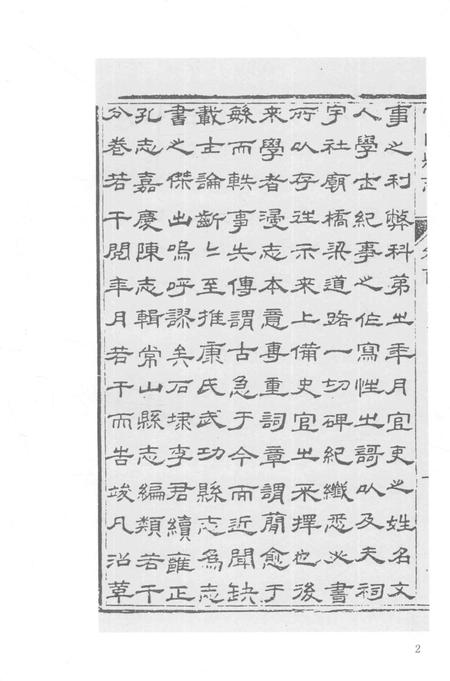 事之利弊科第之年月官吏之姓名文
人學士紀事之作寫性之謌以及夫祠
宇社廟橋梁道路一切碑紀纖悉必書
所以存往示來上備史官之采擇也後
來學者漫志本意專重詞章謂簡愈于
緐而軼事失傳謂古急于今而近聞缺
載士論齗〻至推康氏武功縣志為志
書之傑出嗚呼謬矣石埭李君續雍正
孔志嘉慶陳志輯常山縣志編類若干
分卷若干閱年月若干而告竣凡沿革
2